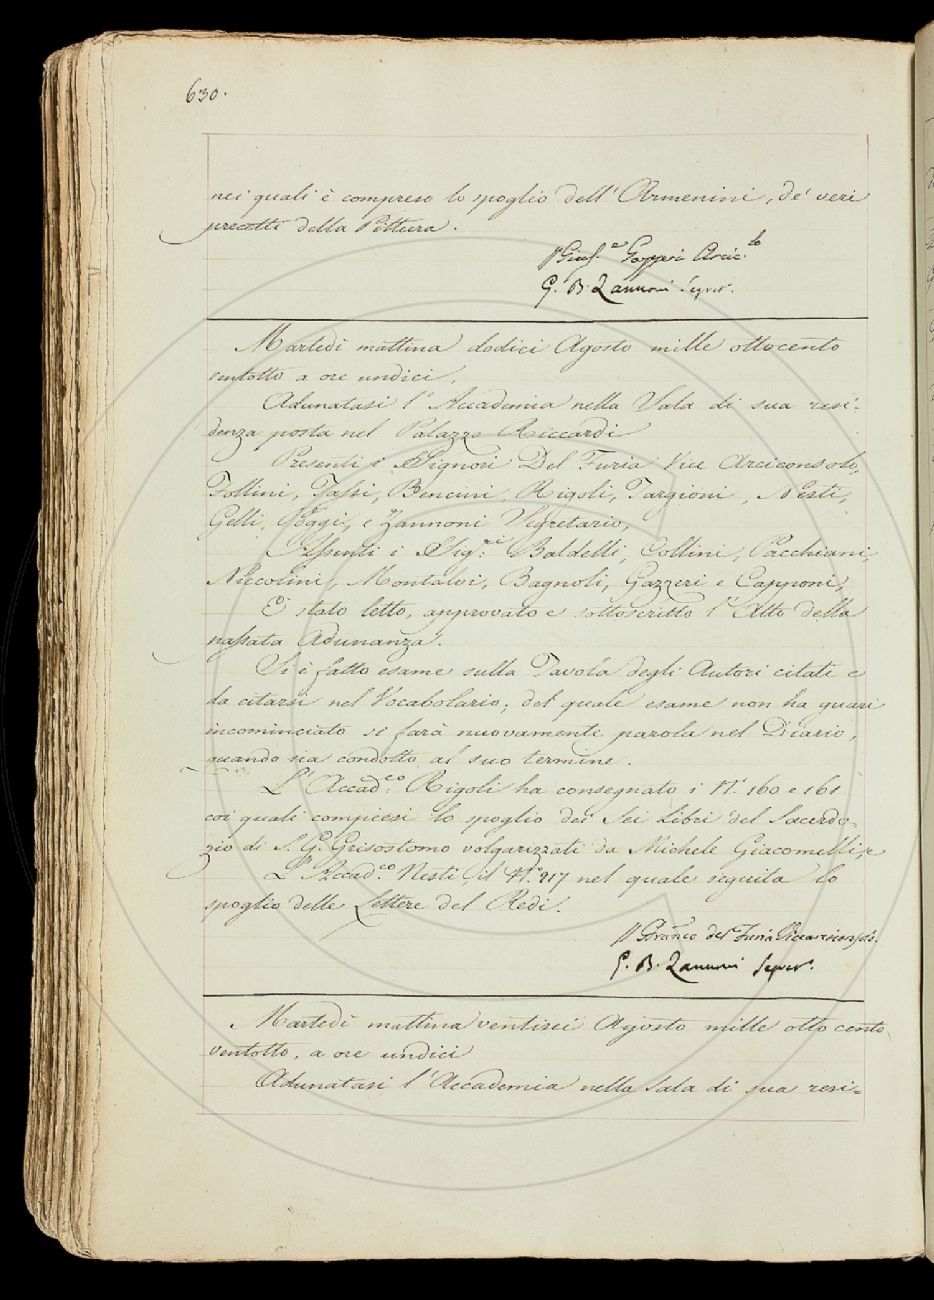 630.
nei quali è compreso lo spoglio dell' Armenini, de' veri
precetti della Pittura.
Gius.e Gazzeri Arcic.lo
G. B. Zannoni Segret.
Martedì mattina dodici Agosto mille ottocento
ventotto a ore undici.
Adunatasi l' Accademia nella Sala di sua resi-
denza posta nel Palazzo Riccardi
Presenti i Signori Del Furia Vice Arciconsolo,
Follini, Tassi, Bencini, Rigoli, Targioni, Nesti,
Gelli, Poggi, e Zannoni Segretario,
Assenti i Sig.ri Baldelli, Collini, Pacchiani,
Niccolini, Montalvi, Bagnoli, Gazzeri e Capponi,
È stato letto, approvato e sottoscritto l' Atto della
passata Adunanza.
Si è fatto esame sulla Tavola degli Autori citati e
da citarsi nel Vocabolario; del quale esame non ha guari
incominciato si farà nuovamente parola nel Diario,
quando sia condotto al suo termine.
L' Accad.co Rigoli ha consegnato i N.i 160 e 161
coi quali compiesi lo spoglio dei Sei Libri del Sacerdo-
zio di S. G. Grisostomo volgarizzati da Michele Giacomelli, e
L' Accad.co Nesti il N.o 217 nel quale seguita lo
spoglio delle Lettere del Redi.
Franco del Furia Vicearciconsolo.
G. B. Zannoni Segret.
Martedì mattina ventisei Agosto mille otto cento
ventotto, a ore undici
Adunatasi l' Accademia nella Sala di sua resi-